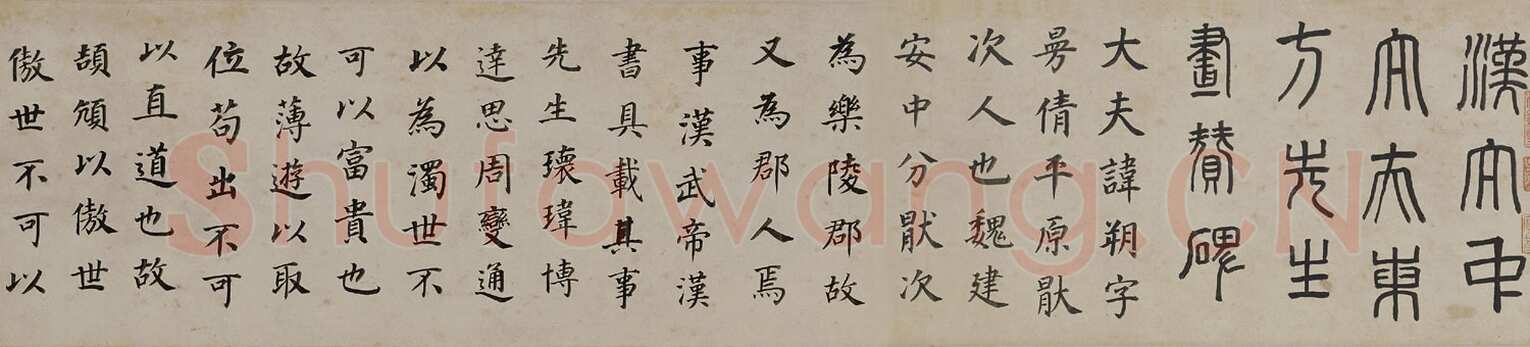 漢大中
大夫東
方先生
畫贊碑
大夫諱朔字
曼倩平原猒
次人也魏建
安中分猒次
為樂陵郡故
又為郡人焉
事漢武帝漢
書具載其事
先生瓌瑋博
達思周變通
以為濁世不
可以富貴也
故薄遊以取
位苟出不可
以直道也故
頡頏以傲世
傲世不可以
Shufawang.CN